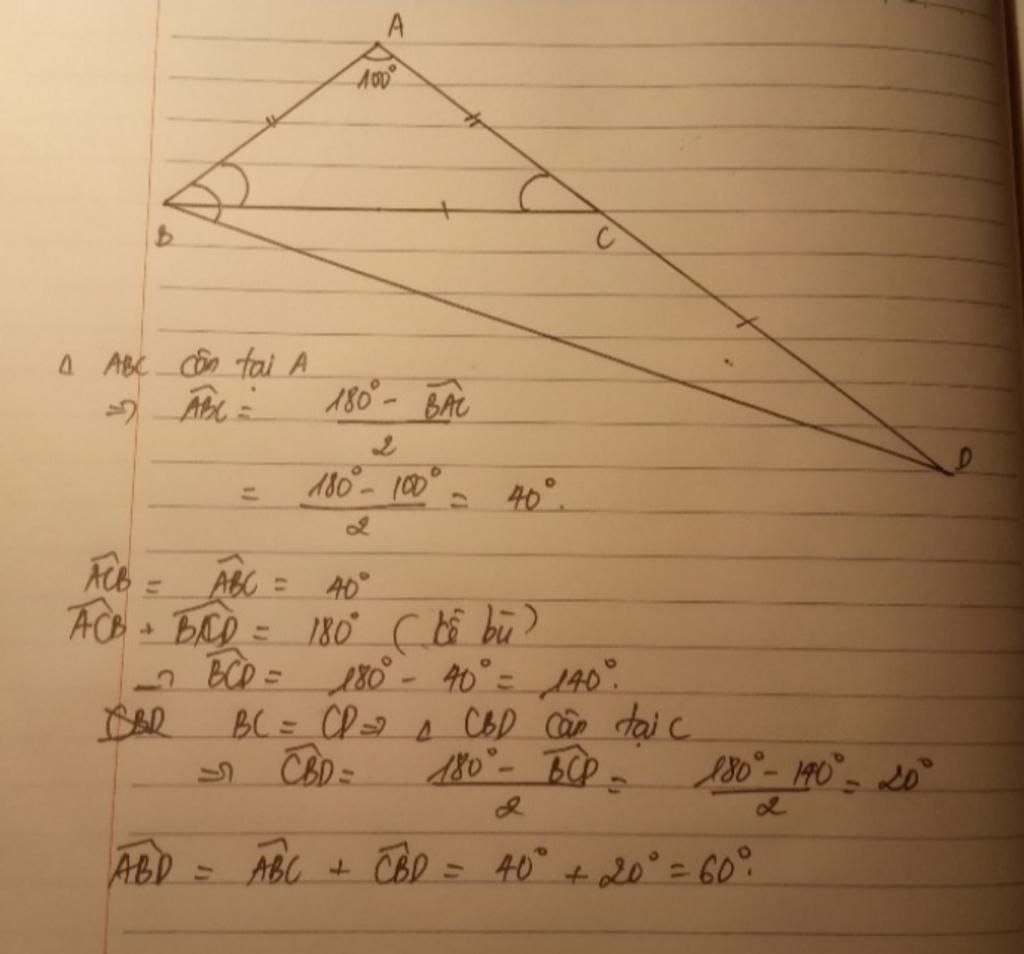 A
100°
B
C
D
Δ ABC cân tại A
⇒ \widehat{ABC} = \frac{180° - \widehat{BAC}}{2}
= \frac{180° - 100°}{2} = 40°.
\widehat{ACB} = \widehat{ABC} = 40°
\widehat{ACB} + \widehat{BCD} = 180° (kề bù)
→ \widehat{BCD} = 180° - 40° = 140°.
CBD BC = CD ⇒ Δ CBD cân tại C
⇒ \widehat{CBD} = \frac{180° - \widehat{BCD}}{2} = \frac{180° - 140°}{2} = 20°
\widehat{ABD} = \widehat{ABC} + \widehat{CBD} = 40° + 20° = 60°.